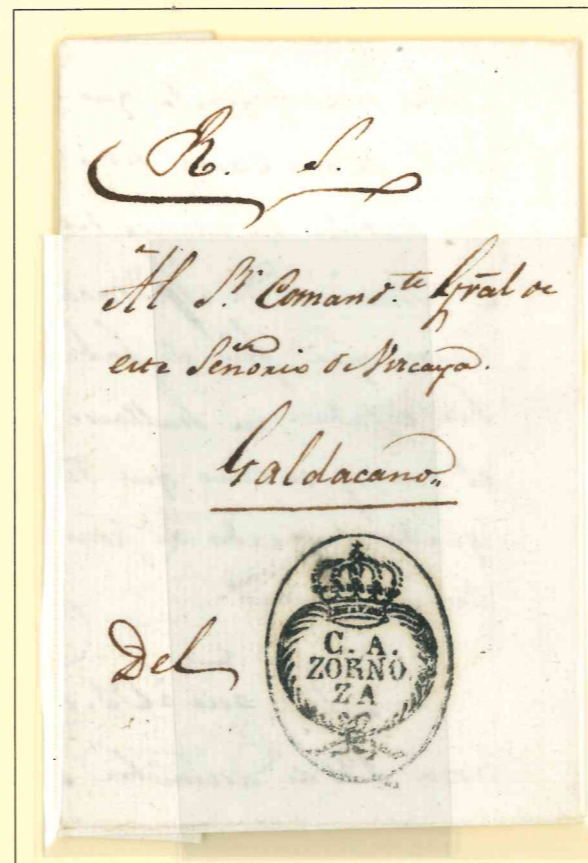 R. S.
Al Sr. Comand.te Gral de
este Señorio de Vizcaya.
Galdacano.
Del
C. A.
ZORNO
ZA